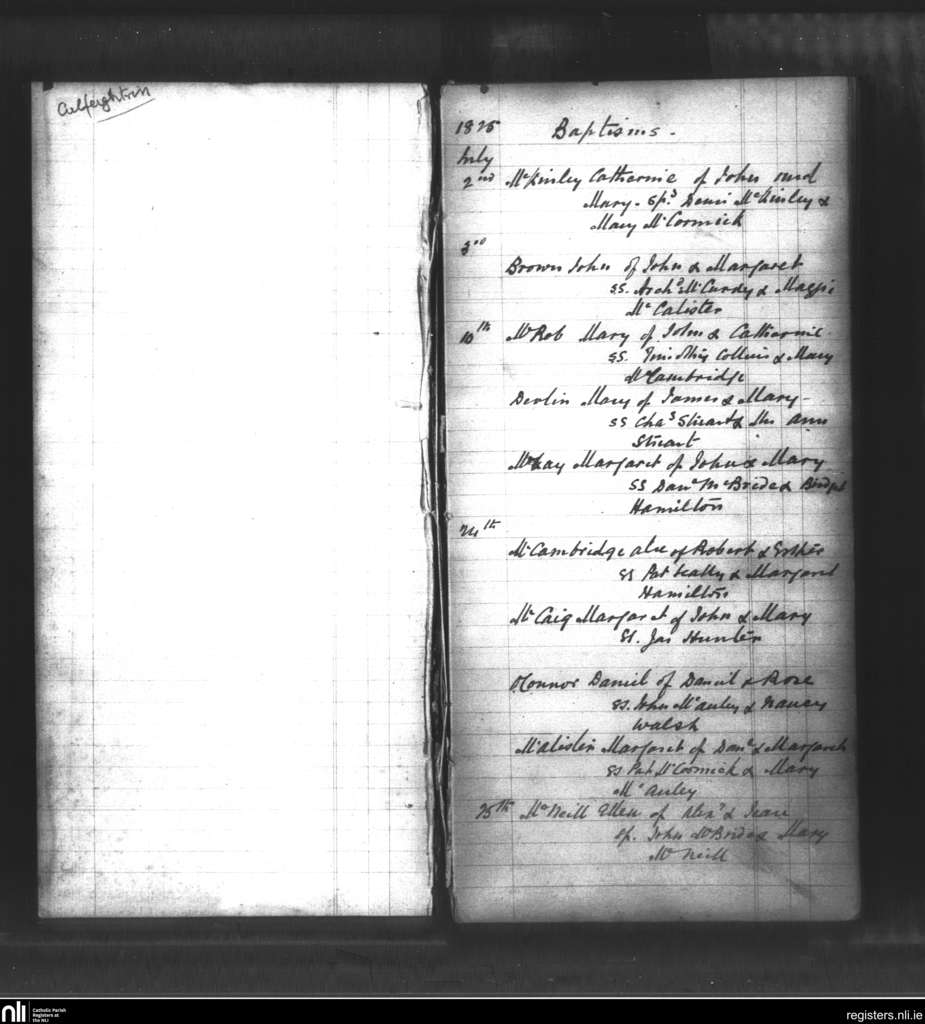 Culfeightrin
1825 Baptisms -
July
2nd McKinley Catherine of John and
Mary - Sps Denis McKinley &
Mary McCormick
3rd
Brown John of John & Margaret
SS. Archd McCurdy & Maggie
McCalister
10th McRob Mary of John & Catherine
SS. Timothy Collins & Mary
McCambridge
Devlin Mary of James & Mary -
SS Chas Stuart & Ann
Stuart
McKay Margaret of John & Mary
SS Danl McBride & Bridget
Hamilton
24th
McCambridge of Robert & Esther
SS Pat & Margaret
Hamilton
McCaig Margaret of John & Mary
SS. Jas Hunter
OConnor Daniel of Daniel & Rose
SS. John McAuley & Nancy
Walsh
McAlister Margaret of Danl & Margaret
SS Pat McCormick & Mary
McAuley
25th McNeill Ellen of Alexr & Jean
Sp. John McBride & Mary
McNeill
nli Catholic Parish
Registers at
the NLI
registers.nli.ie